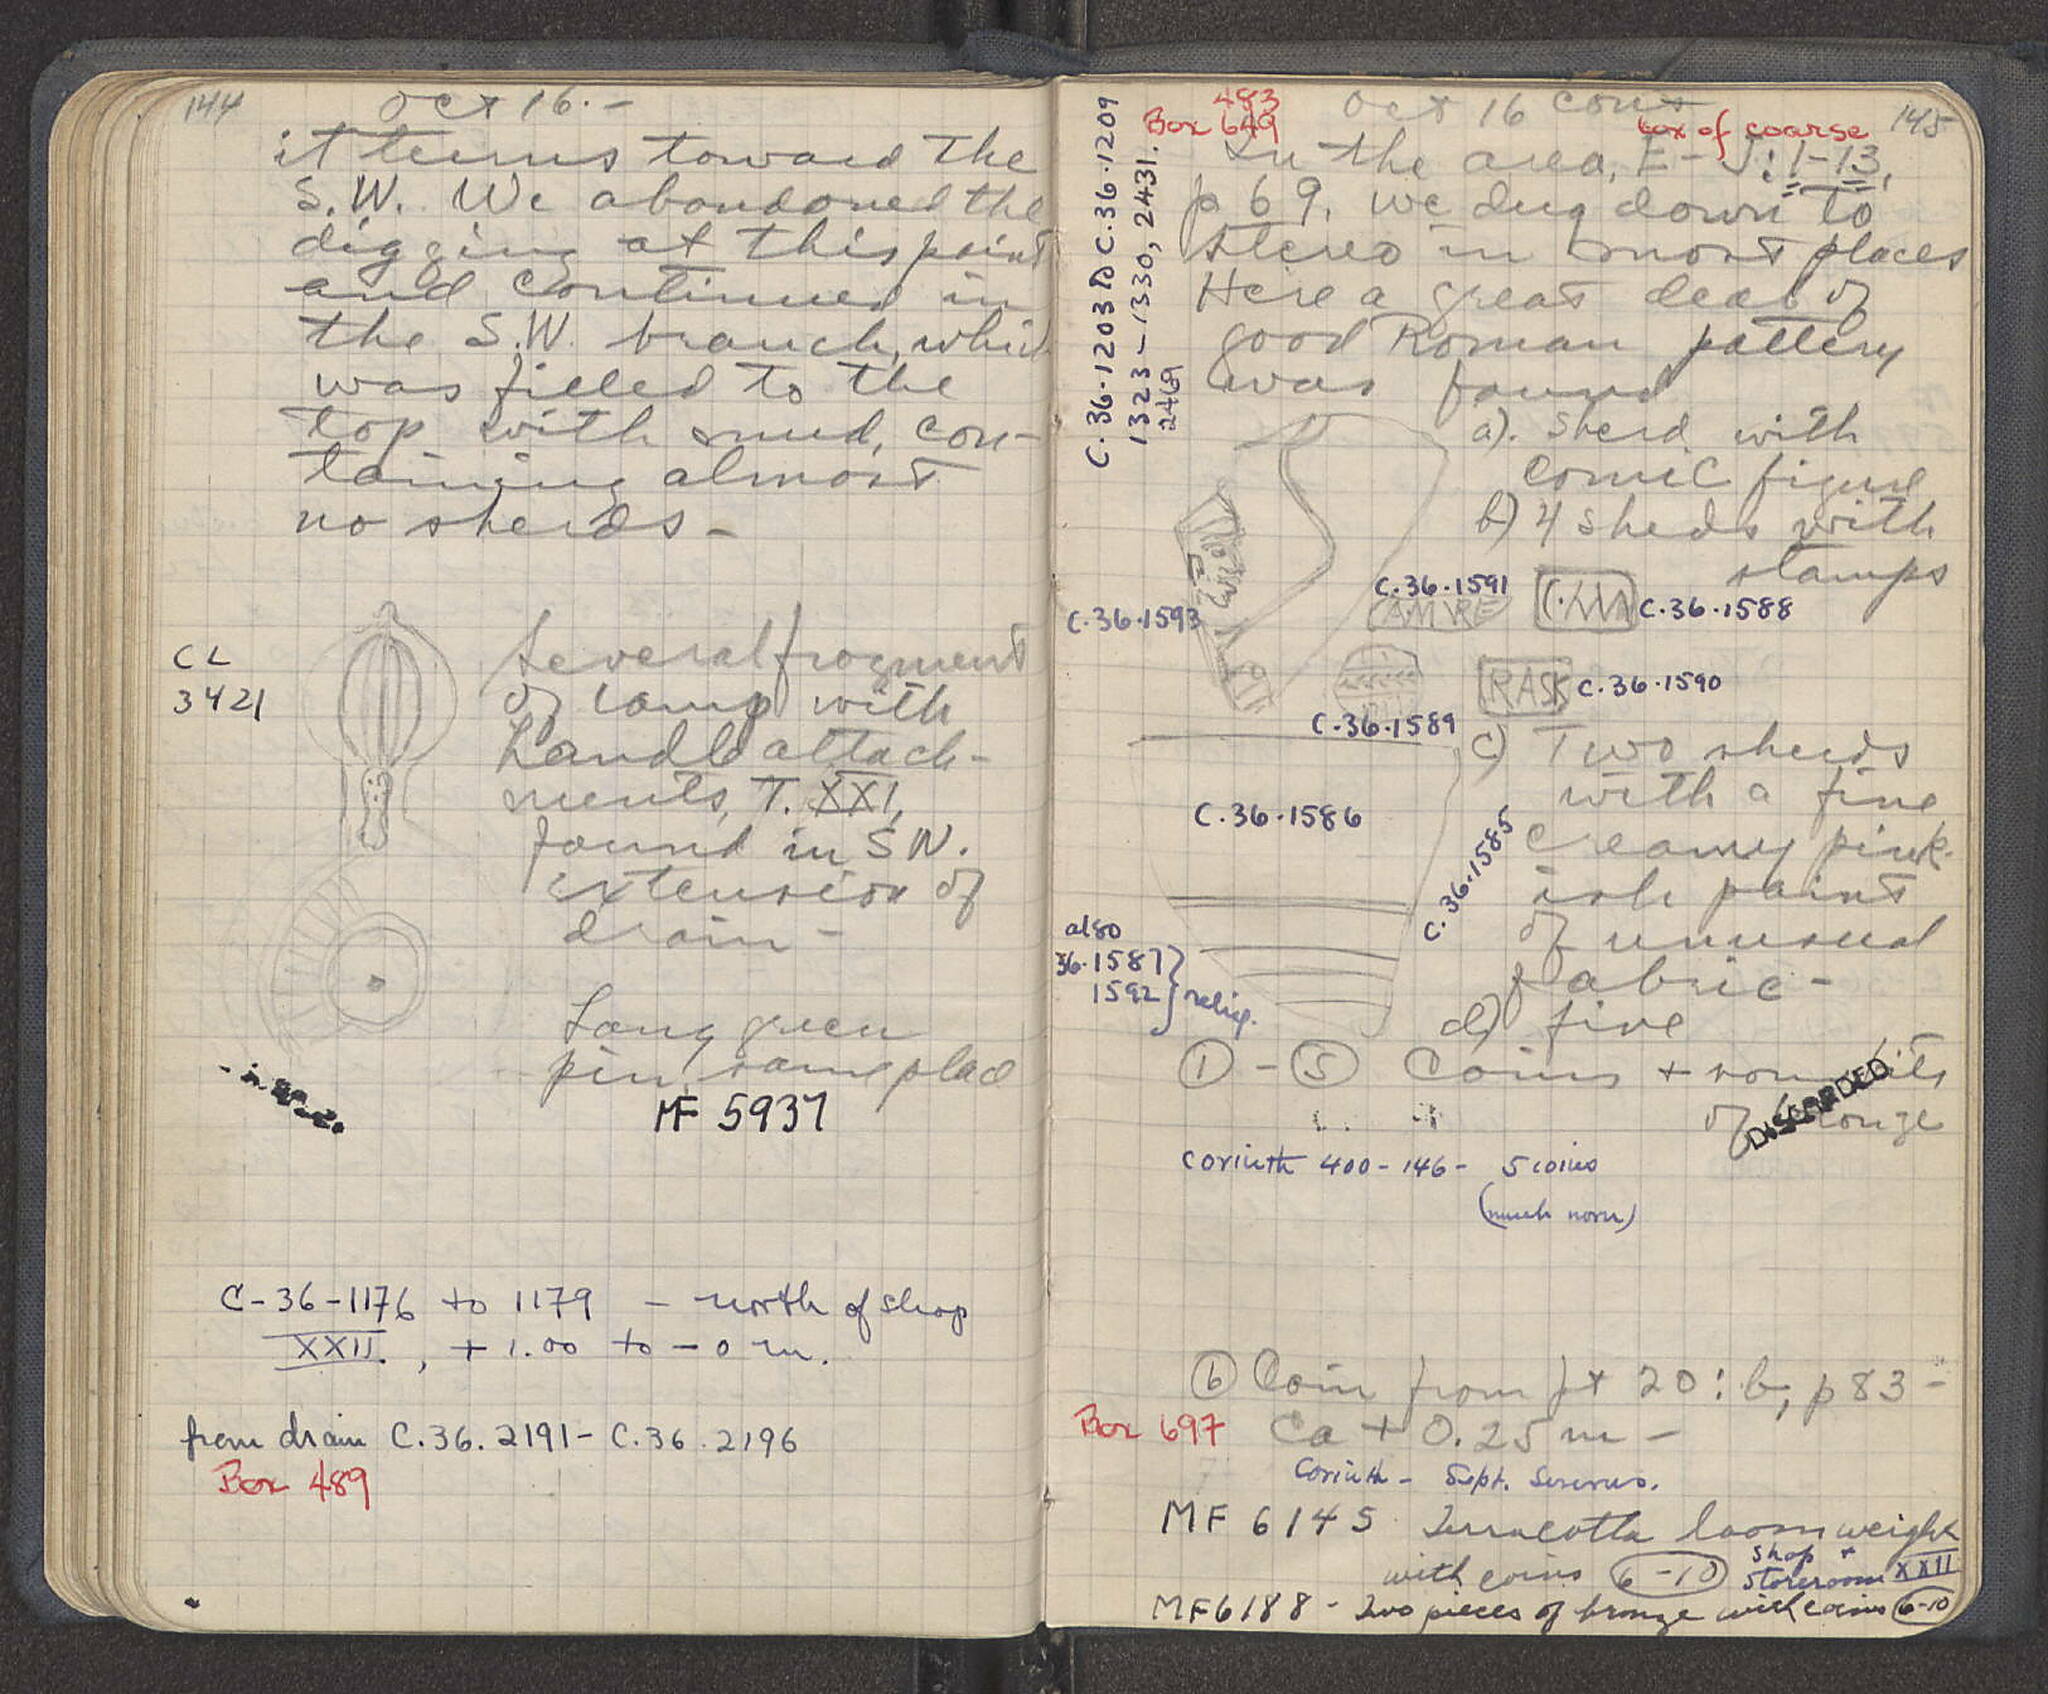 144
Oct 16.-
it turns toward the
S.W. We abandoned the
digging at this point
and continued in
the S.W. branch, which
was filled to the
top with mud, con-
taining almost
no sherds -
CL
3421
Several fragment
of lamp with
handle attach-
ments, T. XXI,
found in SW.
extension of
drain -
Long green
pin, same place
MF 5937
C-36-1176 to 1179 - north of shop
XXII, +1.00 to -0 m.
from drain C.36.2191- C.36.2196
Box 489
145
Oct 16 cont
483
Box 649
box of coarse
C.36.1203 C.36.1209
1323-1330, 2431.
2469
In the area, E-J:1-13,
p 69, we dug down to
stereo in most places
Here a great deal of
good Roman pottery
was found
a). Sherd with
comic figure
b) 4 Sheds with
stamps
C.36.1593
C.36.1591
CAMVRE
C.36.1588
C.36.1589
RASK
C.36.1590
c) Two sherds
with a fine
creamy pink-
ish paint
of unusual
fabric -
C.36.1586
C.36.1585
also
36.1587
1592
d) five
1 - 5 Coins + some bits
of bronze
DISCARDED
Corinth 400-146- 5 coins
(much worn)
6 Coin from pt 20:b, p83-
Ca +0.25 m -
Box 697
Corinth - Sept. Severus.
MF 6145 Terracotta loomweight
with coins 6-10 shop +
storeroom XXII
MF6188 - Two pieces of bronze with coins 6-10